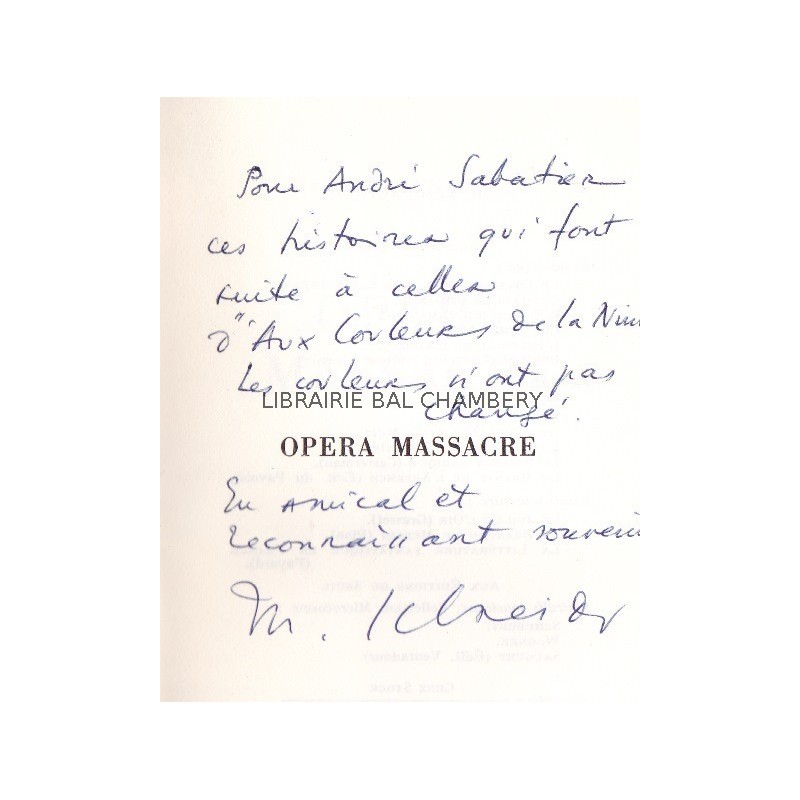 Pour André Sabatier
ces histoires qui font
suite à celles
d'"Aux Couleurs de la Nui
Les couleurs n'ont pas
LIBRAIRIE BAL CHAMBERY
changé.
OPERA MASSACRE
En amical et
reconnaissant souvenir
M. Schneider